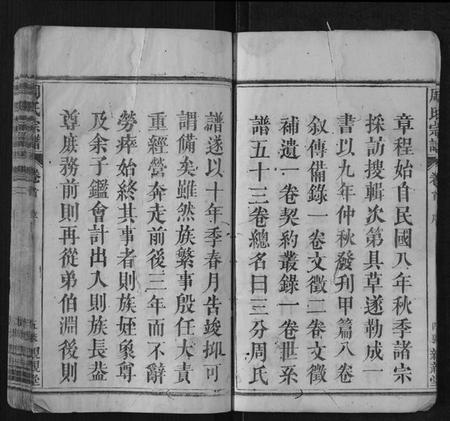 周氏宗譜
卷首
序
章程始自民國八年秋季諸宗
採訪搜輯次第具草遂勒成一
書以九年仲秋發刋甲篇八卷
敘傳備錄一卷文徵二卷文徵
補遺一卷契約叢錄一卷世系
譜五十三卷總名曰三分周氏
譜遂以十年季春月告竣抑可
謂備矣雖然族繁事殷任大責
重經營奔走前後三年而不辭
勞瘁始終其事者則族姪象尊
及余子鑑會計出入則族長益
尊庶務前則再從弟伯淵後則
周氏宗譜
卷首
序